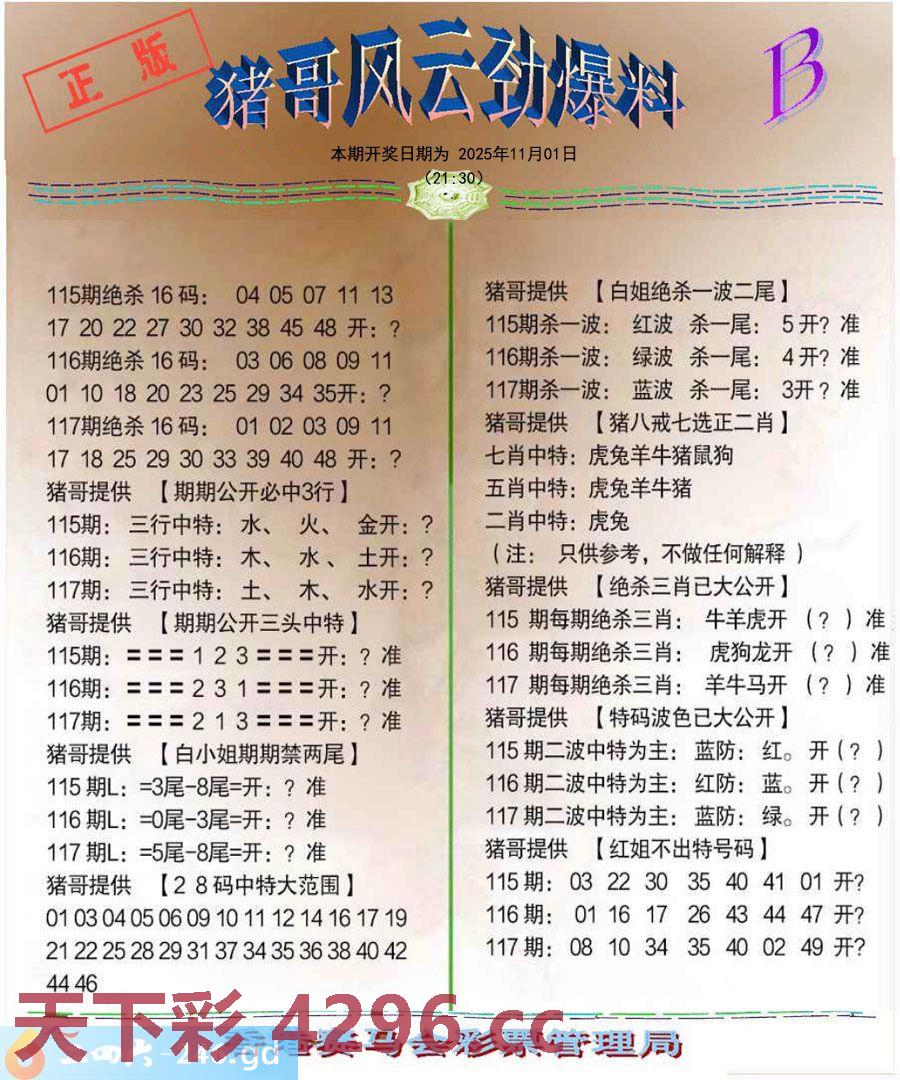 正版
猪哥风云劲爆料
B
本期开奖日期为 2025年11月01日
（21:30）
115期绝杀 16 码： 04 05 07 11 13
17 20 22 27 30 32 38 45 48 开：？
116期绝杀 16 码： 03 06 08 09 11
01 10 18 20 23 25 29 34 35开：？
117期绝杀 16 码： 01 02 03 09 11
17 18 25 29 30 33 39 40 48 开：？
猪哥提供 【期期公开必中3行】
115期： 三行中特： 水、 火、 金开：？
116期： 三行中特： 木、 水 、 土开：？
117期： 三行中特： 土、 木、 水开：？
猪哥提供 【期期公开三头中特】
115期：＝＝＝1 2 3＝＝＝开：？准
116期：＝＝＝2 3 1＝＝＝开：？准
117期：＝＝＝2 1 3＝＝＝开：？准
猪哥提供 【白小姐期期禁两尾】
115 期L：=3尾-8尾=开：？准
116 期L：=0尾-3尾=开：？准
117 期L：=5尾-8尾=开：？准
猪哥提供 【2 8 码中特大范围】
01 03 04 05 06 09 10 11 12 14 16 17 19
21 22 25 28 29 31 37 34 35 36 38 40 42
44 46
猪哥提供 【白姐绝杀一波二尾】
115期杀一波： 红波 杀一尾： 5 开？准
116期杀一波： 绿波 杀一尾： 4 开？准
117期杀一波： 蓝波 杀一尾： 3开 ？准
猪哥提供 【猪八戒七选正二肖】
七肖中特：虎兔羊牛猪鼠狗
五肖中特：虎兔羊牛猪
二肖中特：虎兔
（注： 只供参考，不做任何解释 ）
猪哥提供 【绝杀三肖已大公开】
115 期每期绝杀三肖： 牛羊虎开 （？）准
116 期每期绝杀三肖： 虎狗龙开 （？）准
117 期每期绝杀三肖： 羊牛马开 （？）准
猪哥提供 【特码波色已大公开】
115 期二波中特为主： 蓝防： 红。 开（？）
116 期二波中特为主： 红防： 蓝。 开（？）
117 期二波中特为主： 蓝防： 绿。 开（？）
猪哥提供 【红姐不出特号码】
115 期： 03 22 30 35 40 41 01 开?
116 期： 01 16 17 26 43 44 47 开?
117 期： 08 10 34 35 40 02 49 开?
天下彩 4296.cc
马会彩票管理局
二四六-246.gd